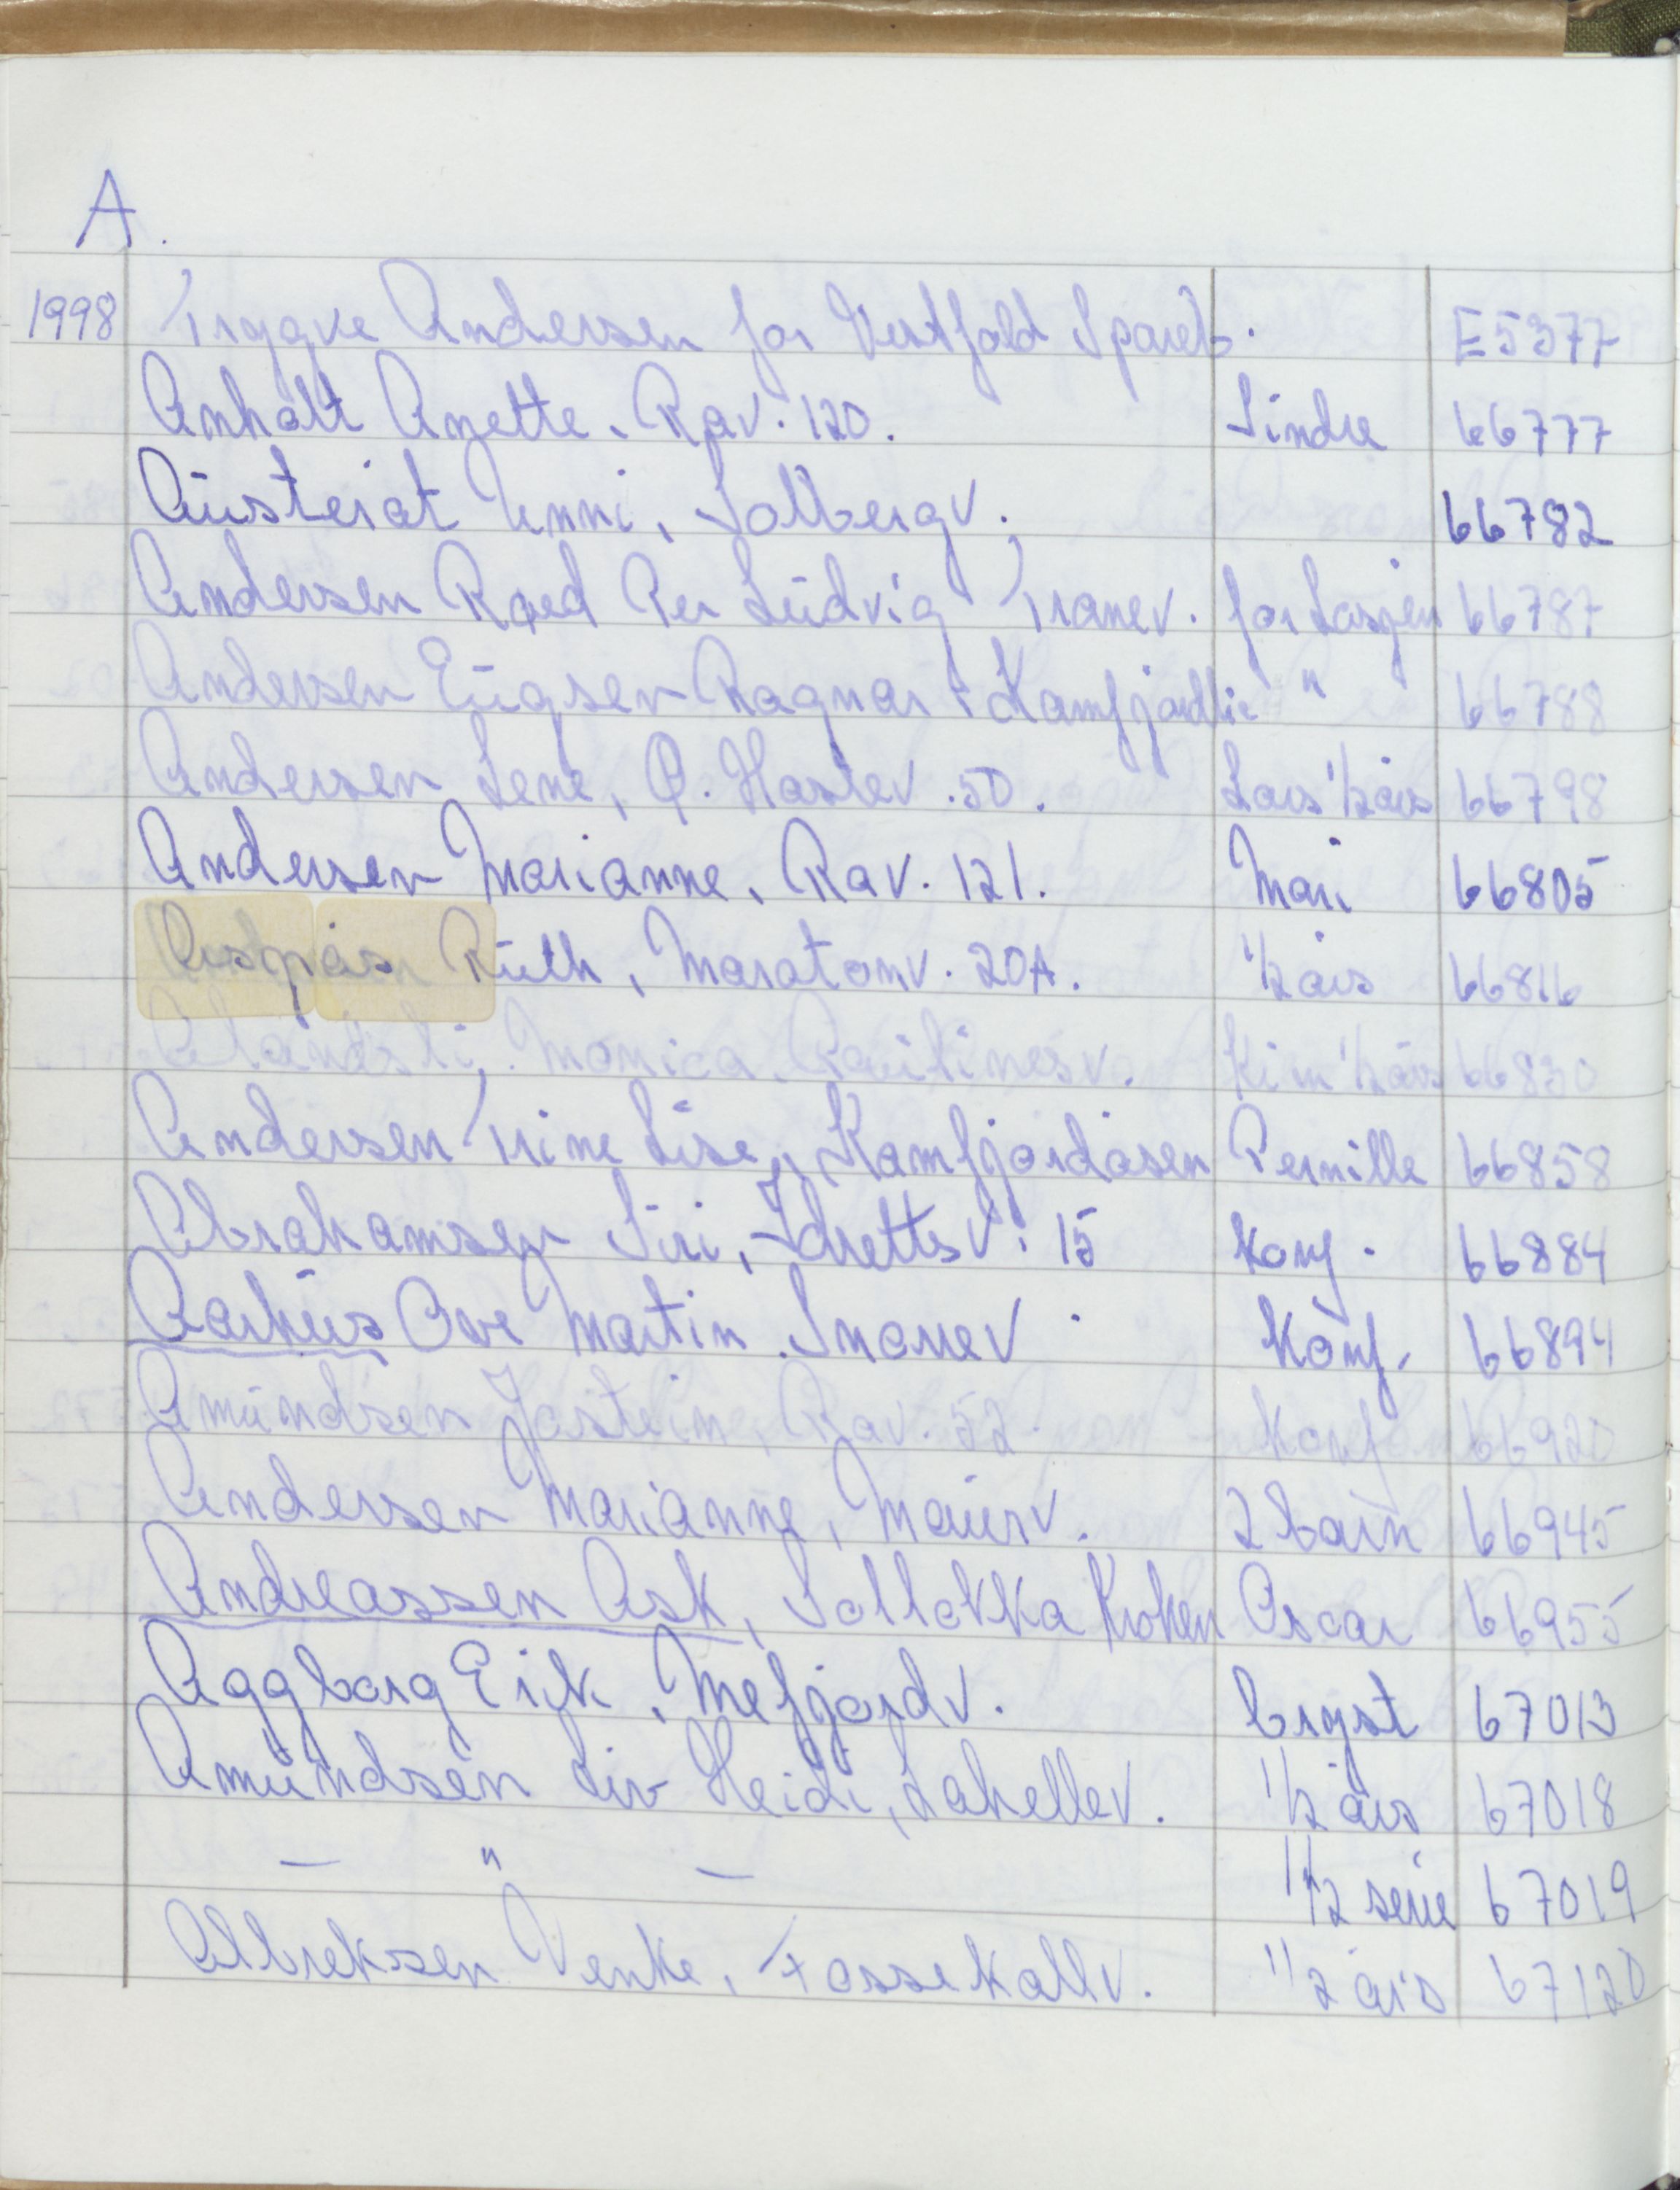 A.
1998 Trygve Andersen for Vestfold Spareb. E5377
Anholt Anette, Rav. 120. Sindre 66777
Austeiat Unni, Solbergv. 66782
Andersen Roed Per Ludvig Tranev. for Lasjen 66787
Andersen Ragnar Kamfjordli " 66788
Andersen Lene, Ø. Haslev. 50. Lars 1/2 års 66798
Andersen Marianne, Rav. 121. Mari 66805
Aspås Ruth, Maratonv. 20A. 1/2 års 66816
Monica Kim 1/2 års 66830
Andersen Trine Lise, Kamfjordåsen Pernille 66858
Abrahamsen Siri, Idrettsv. 15 Konf. 66884
Aarhus Ove Martin Snorrev. Konf. 66894
Amundsen Josteine, Rav. 52. Konf 66920
Andersen Marianne, Maurv. 2 barn 66945
Andreassen Ask, Solløkka Kroken Oscar 66955
Aggborg Erik, Mefjordv. bryst 67013
Amundsen Liv Heidi, Lahellev. 1/2 års 67018
— " — 1/2 serie 67019
Albreksen Venke, Fossekallv. 1/2 års 67120